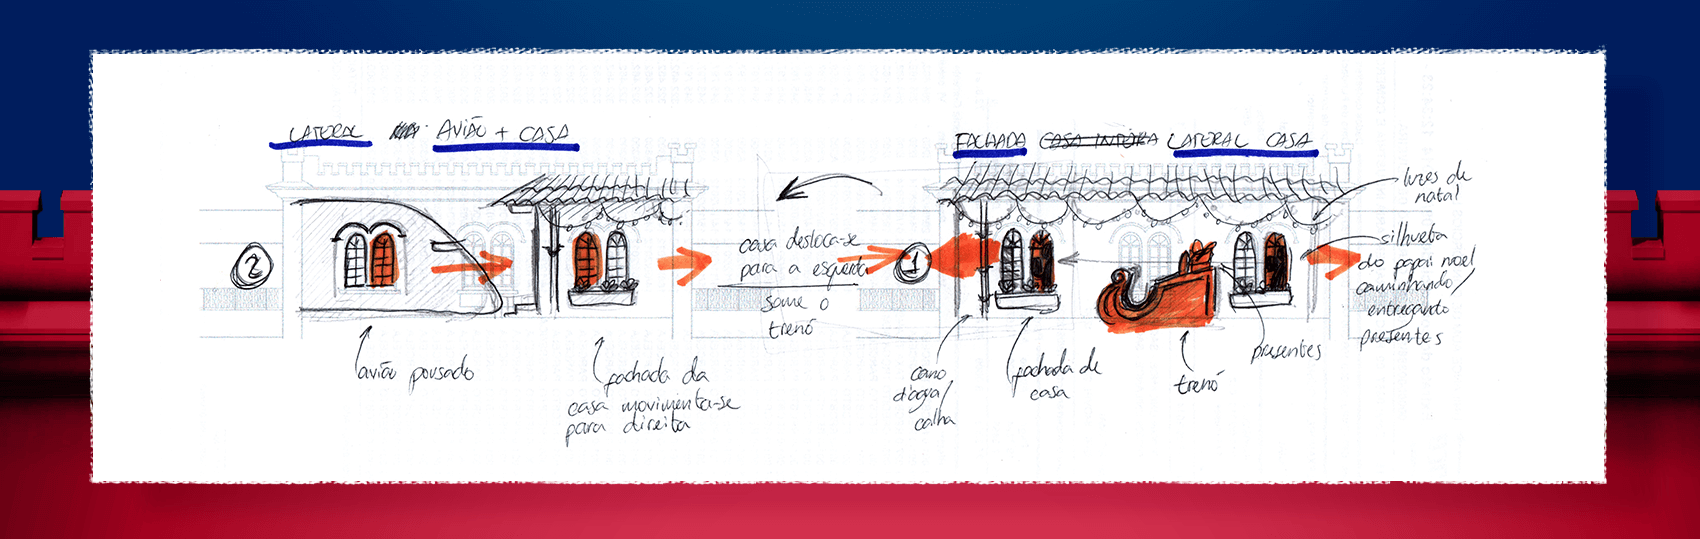 LATERAL AVIÃO + CASA
2
avião pousado
fachada da
casa movimenta-se
para direita
casa desloca-se
para a esquerda
some o
trenó
FACHADA LATERAL CASA
1
luzes de
natal
silhueta
do papai noel
caminhando/
entregando
presentes
cano
d'agua/
calha
fachada de
casa
trenó
presentes